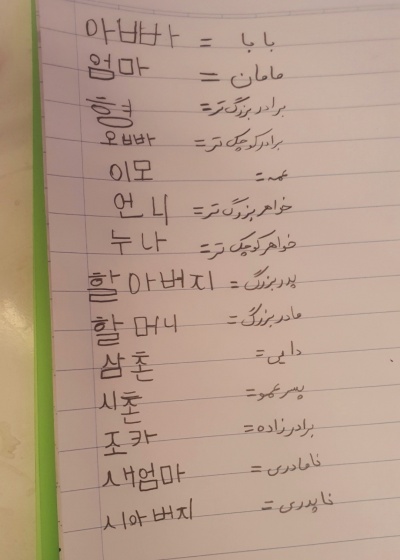 아빠 = بابا
엄마 = مامان
형 = برادر بزرگ تر
오빠 = برادر کوچک تر
이모 = عمه
언니 = خواهر بزرگ تر
누나 = خواهر کوچک تر
할아버지 = پدربزرگ
할머니 = مادربزرگ
삼촌 = دایی
시촌 = پسر عمو
조카 = برادرزاده
새엄마 = نامادری
시아버지 = ناپدری